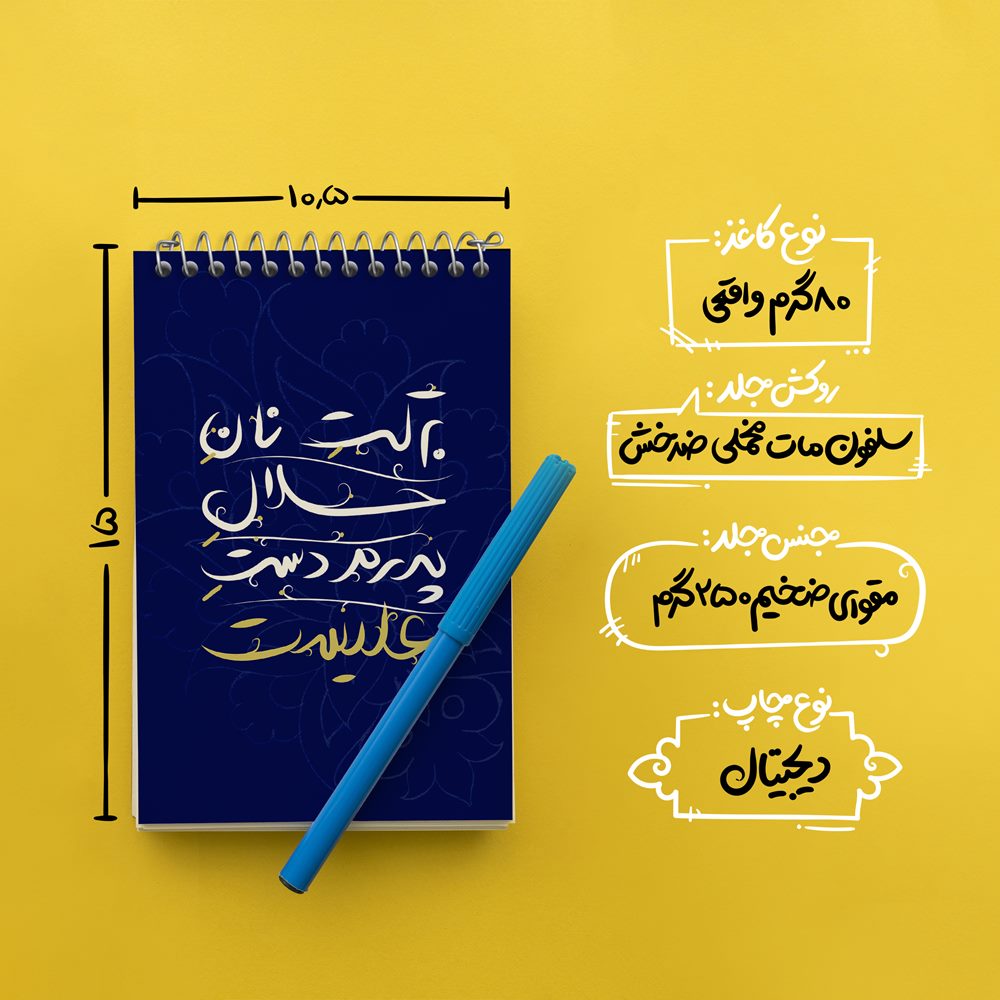 ۱۰٫۵
۱۵
برکتِ نانِ
حلالِ
پدرم دستِ
علیست
نوع کاغذ:
۸۰گرم واقعی
روکش جلد:
سلفون مات مخملی ضدخش
جنس جلد:
مقوای ضخیم ۲۵۰ گرم
نوع چاپ:
دیجیتال